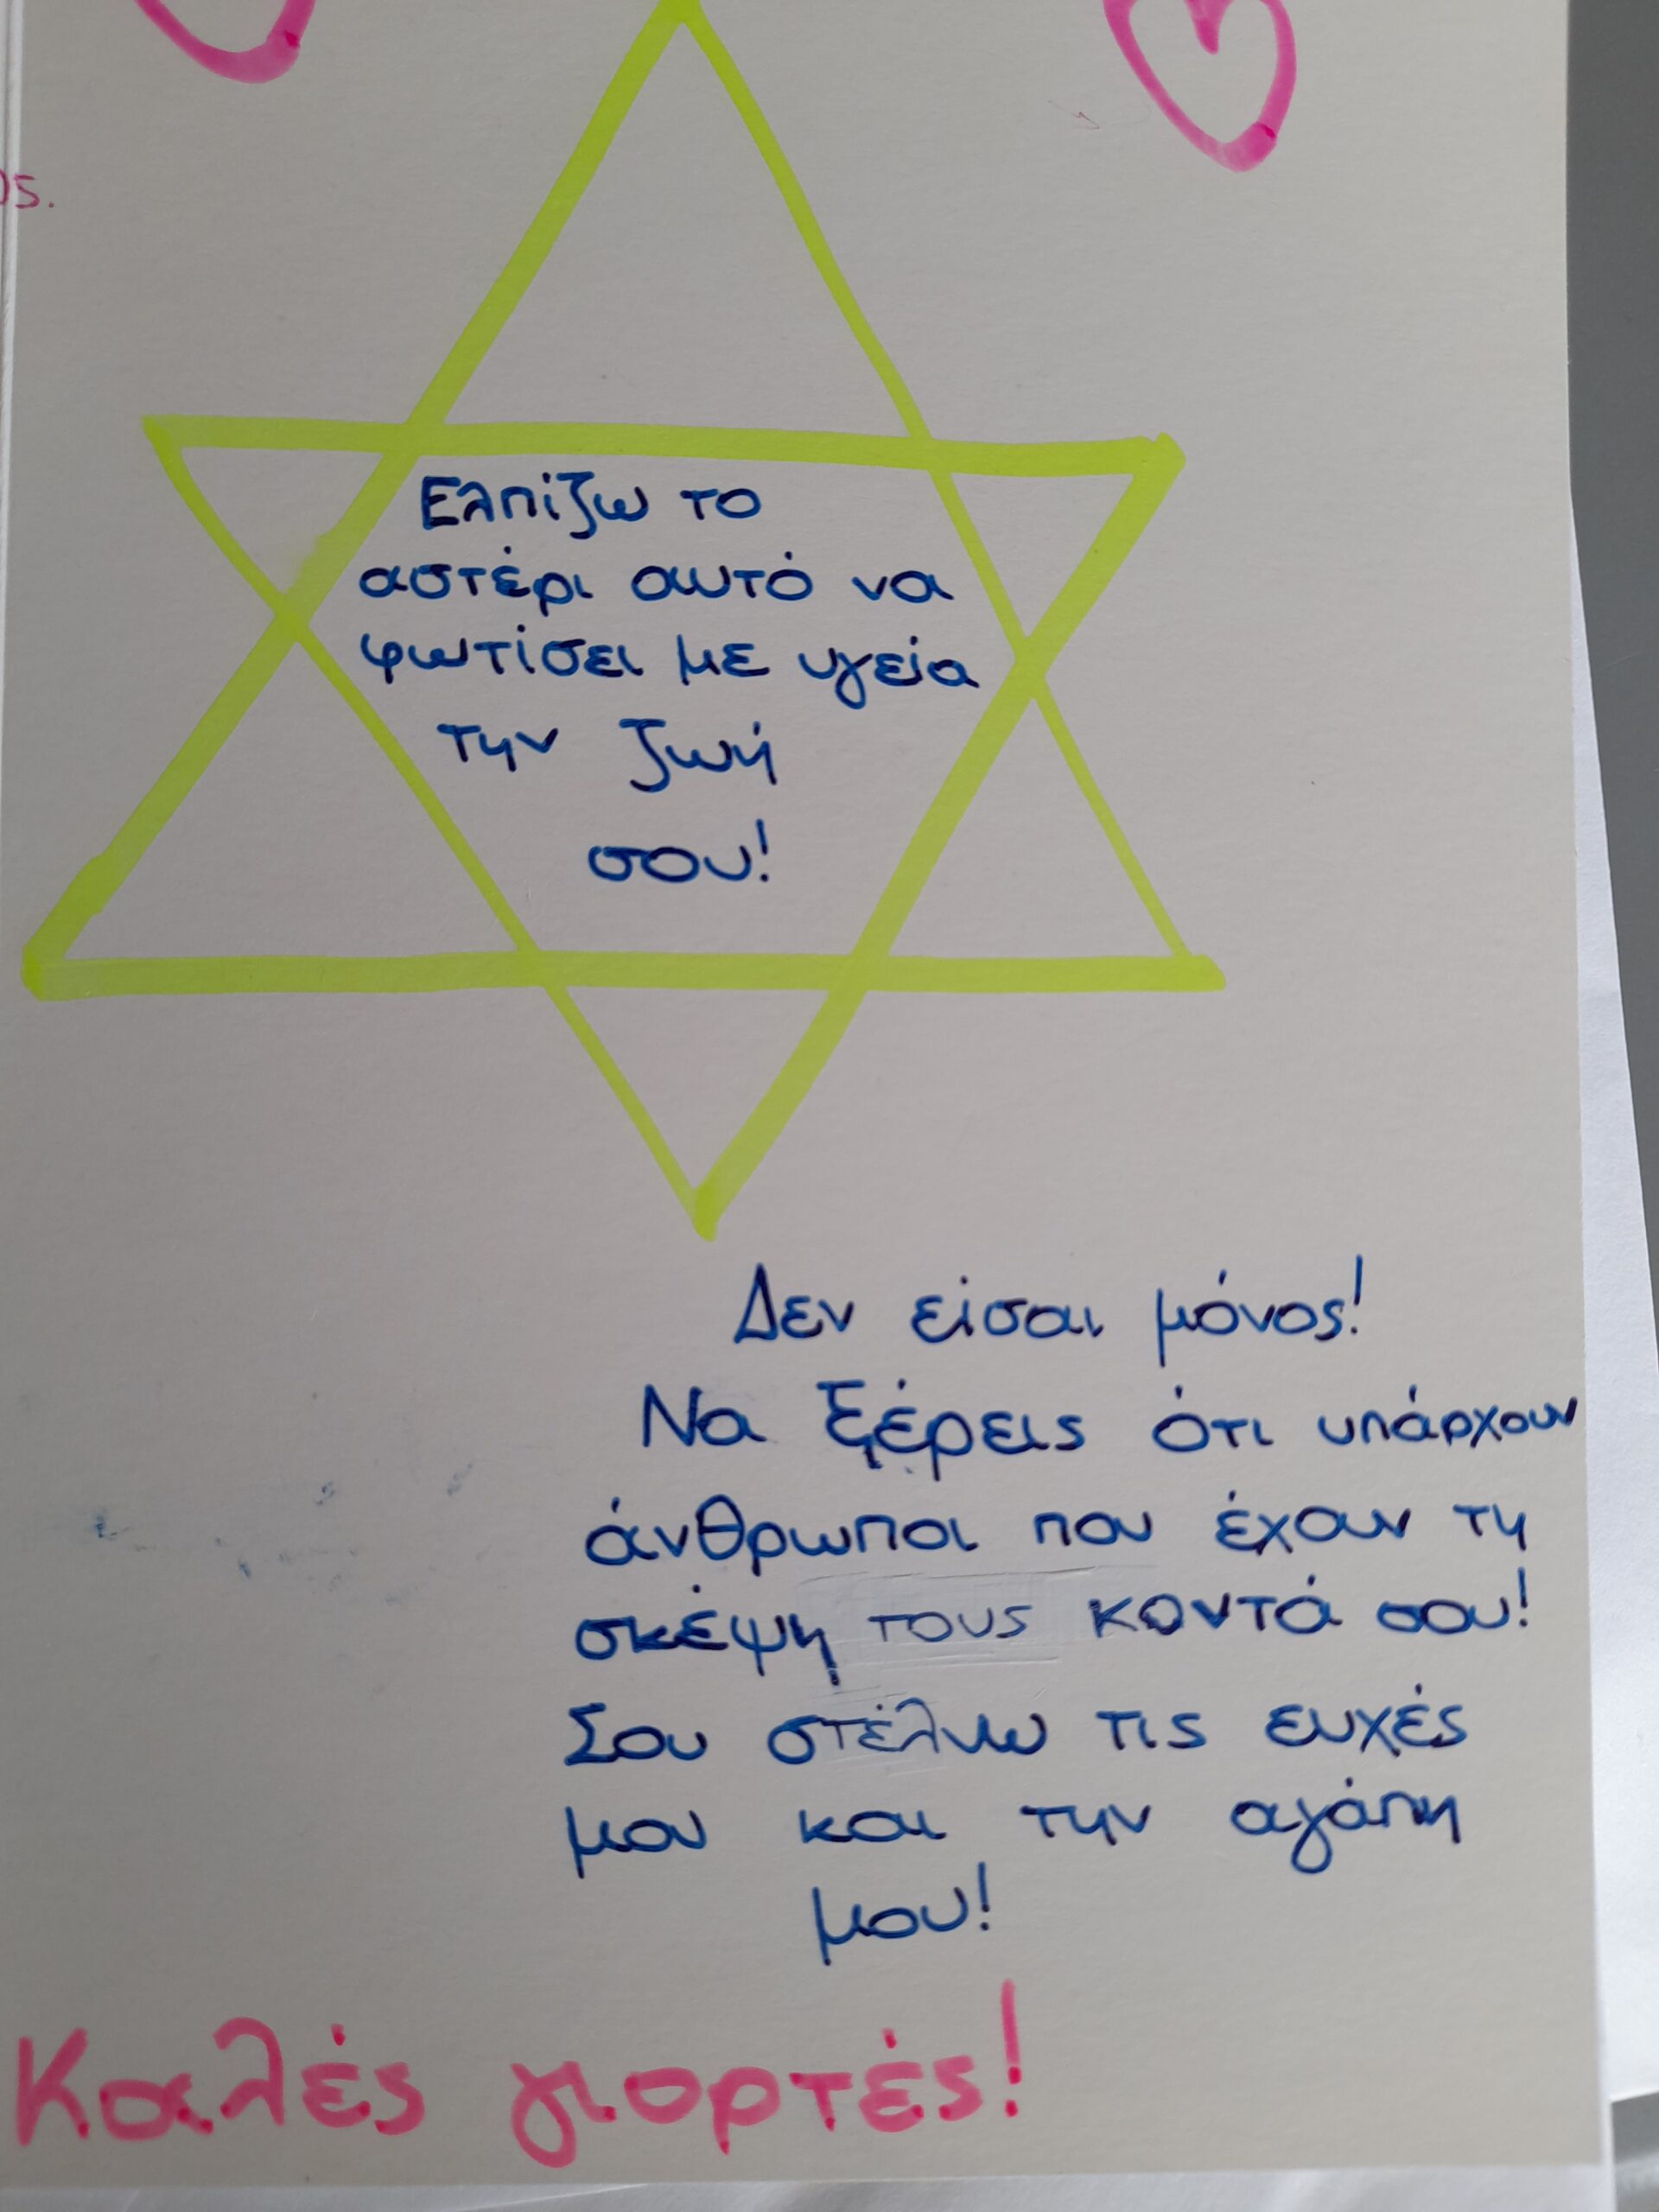 Ελπίζω το
αστέρι αυτό να
φωτίσει με υγεία
την ζωή
σου!
Δεν είσαι μόνος!
Να ξέρεις ότι υπάρχουν
άνθρωποι που έχουν τη
σκέψη τους κοντά σου!
Σου στέλνω τις ευχές
μου και την αγάπη
μου!
Καλές γιορτές!